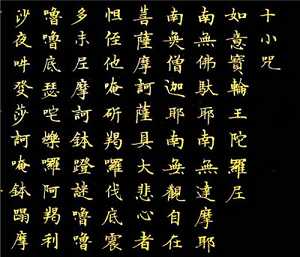 十小咒
如意寶輪王陀羅尼
南無佛馱耶南無達摩耶
南無僧迦耶南無觀自在
菩薩摩訶薩具大悲心者
怛侄他唵斫羯囉伐底震
多末尼摩訶鉢蹬謎嚕
嚕嚕底瑟咤爍囉阿羯利
沙夜吽發莎訶唵鉢蹋摩